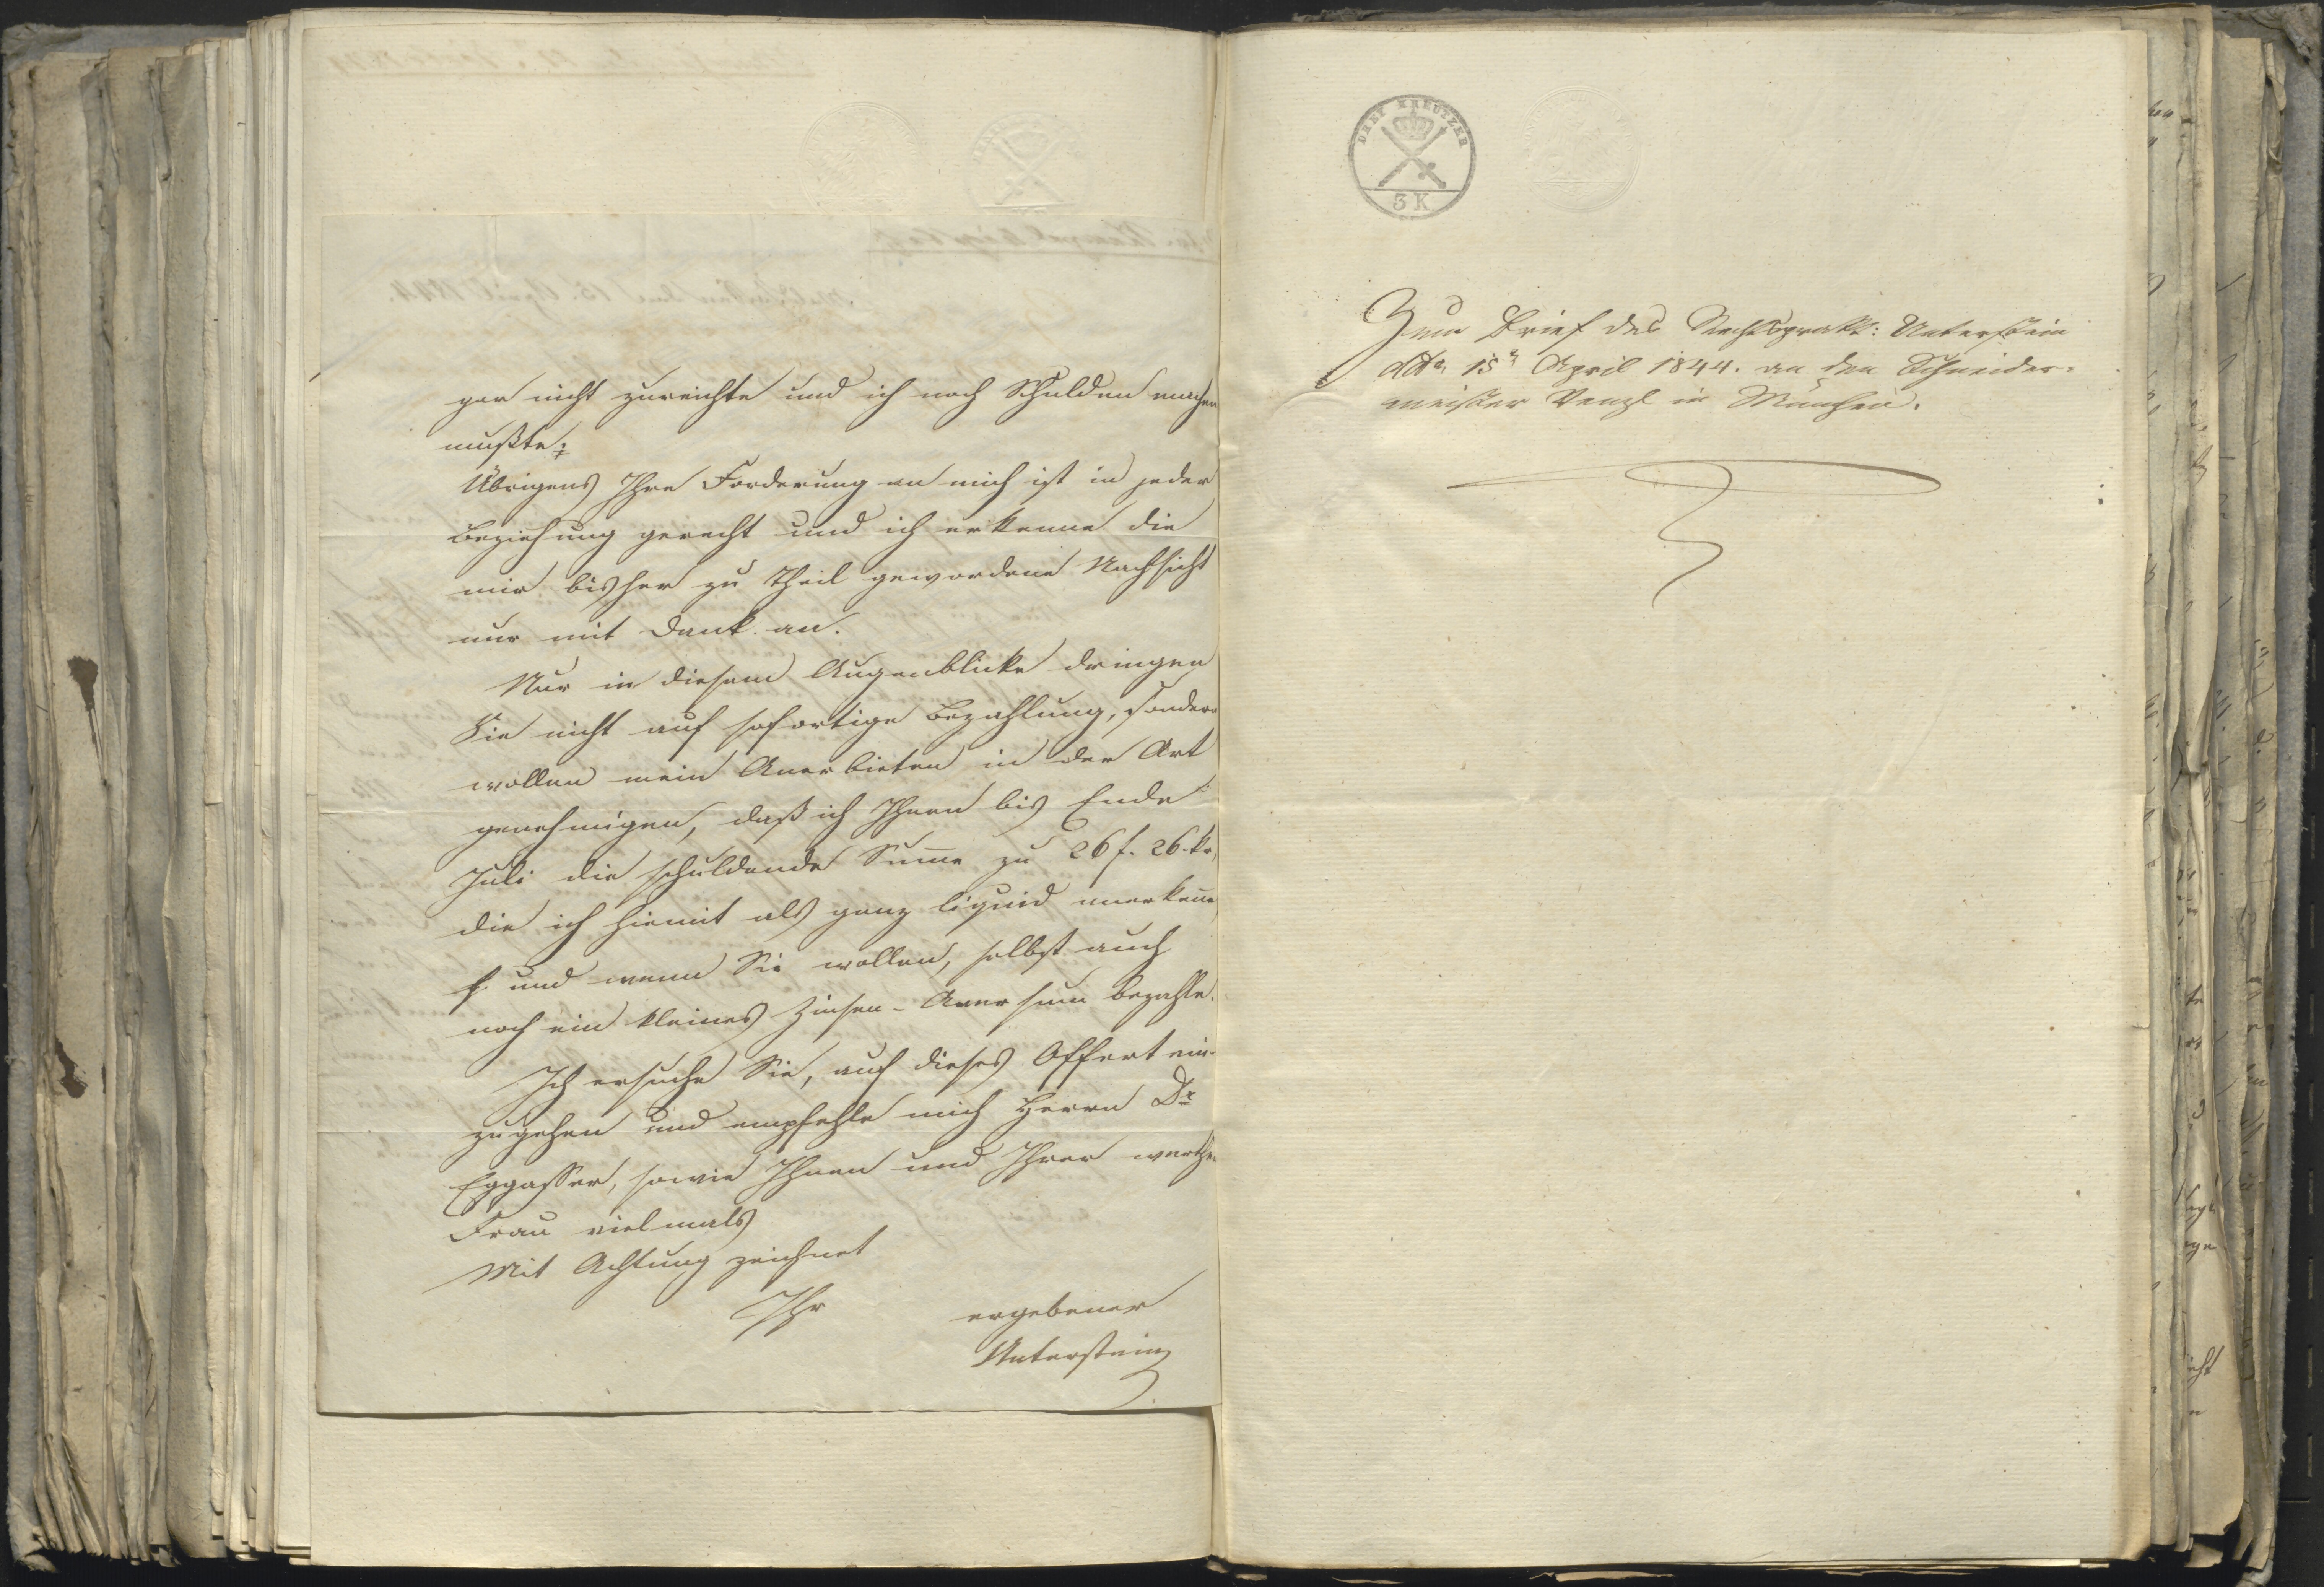 gar nicht zureichte und ich noch Schulden machen
mußte;
Übrigens Ihre Forderung an mich ist in jeder
Beziehung gerecht und ich erkenne die
mir bisher zu Theil gewordene Nachsicht
nur mit Dank an.
Nur in diesem Augenblicke dringen
Sie nicht auf sofortige Bezahlung, sondern
wollen mein Anerbieten in der Art
genehmigen, daß ich Ihnen bis Ende
Juli die schuldende Sum̄e zu 26 f. 26 kr,
die ich hiemit als ganz liquid anerken̄e
und wenn Sie wollen, selbst auch
noch ein kleines Zinsen-Aversum bezahle.
Ich ersuche Sie, auf dieses Offert ein-
zugehen und empfehle mich Herrn Dr
Eggasser, sowie Ihnen und Ihrer werthen
Frau vielmals
Mit Achtung zeichnet
Ihr ergebener
Unterstein
DREY KREUTZER
3 K
Zum Brief des Rechtsprakt: Unterstein
ddo 15n April 1844. an den Schneider-
meister Venzl in München.